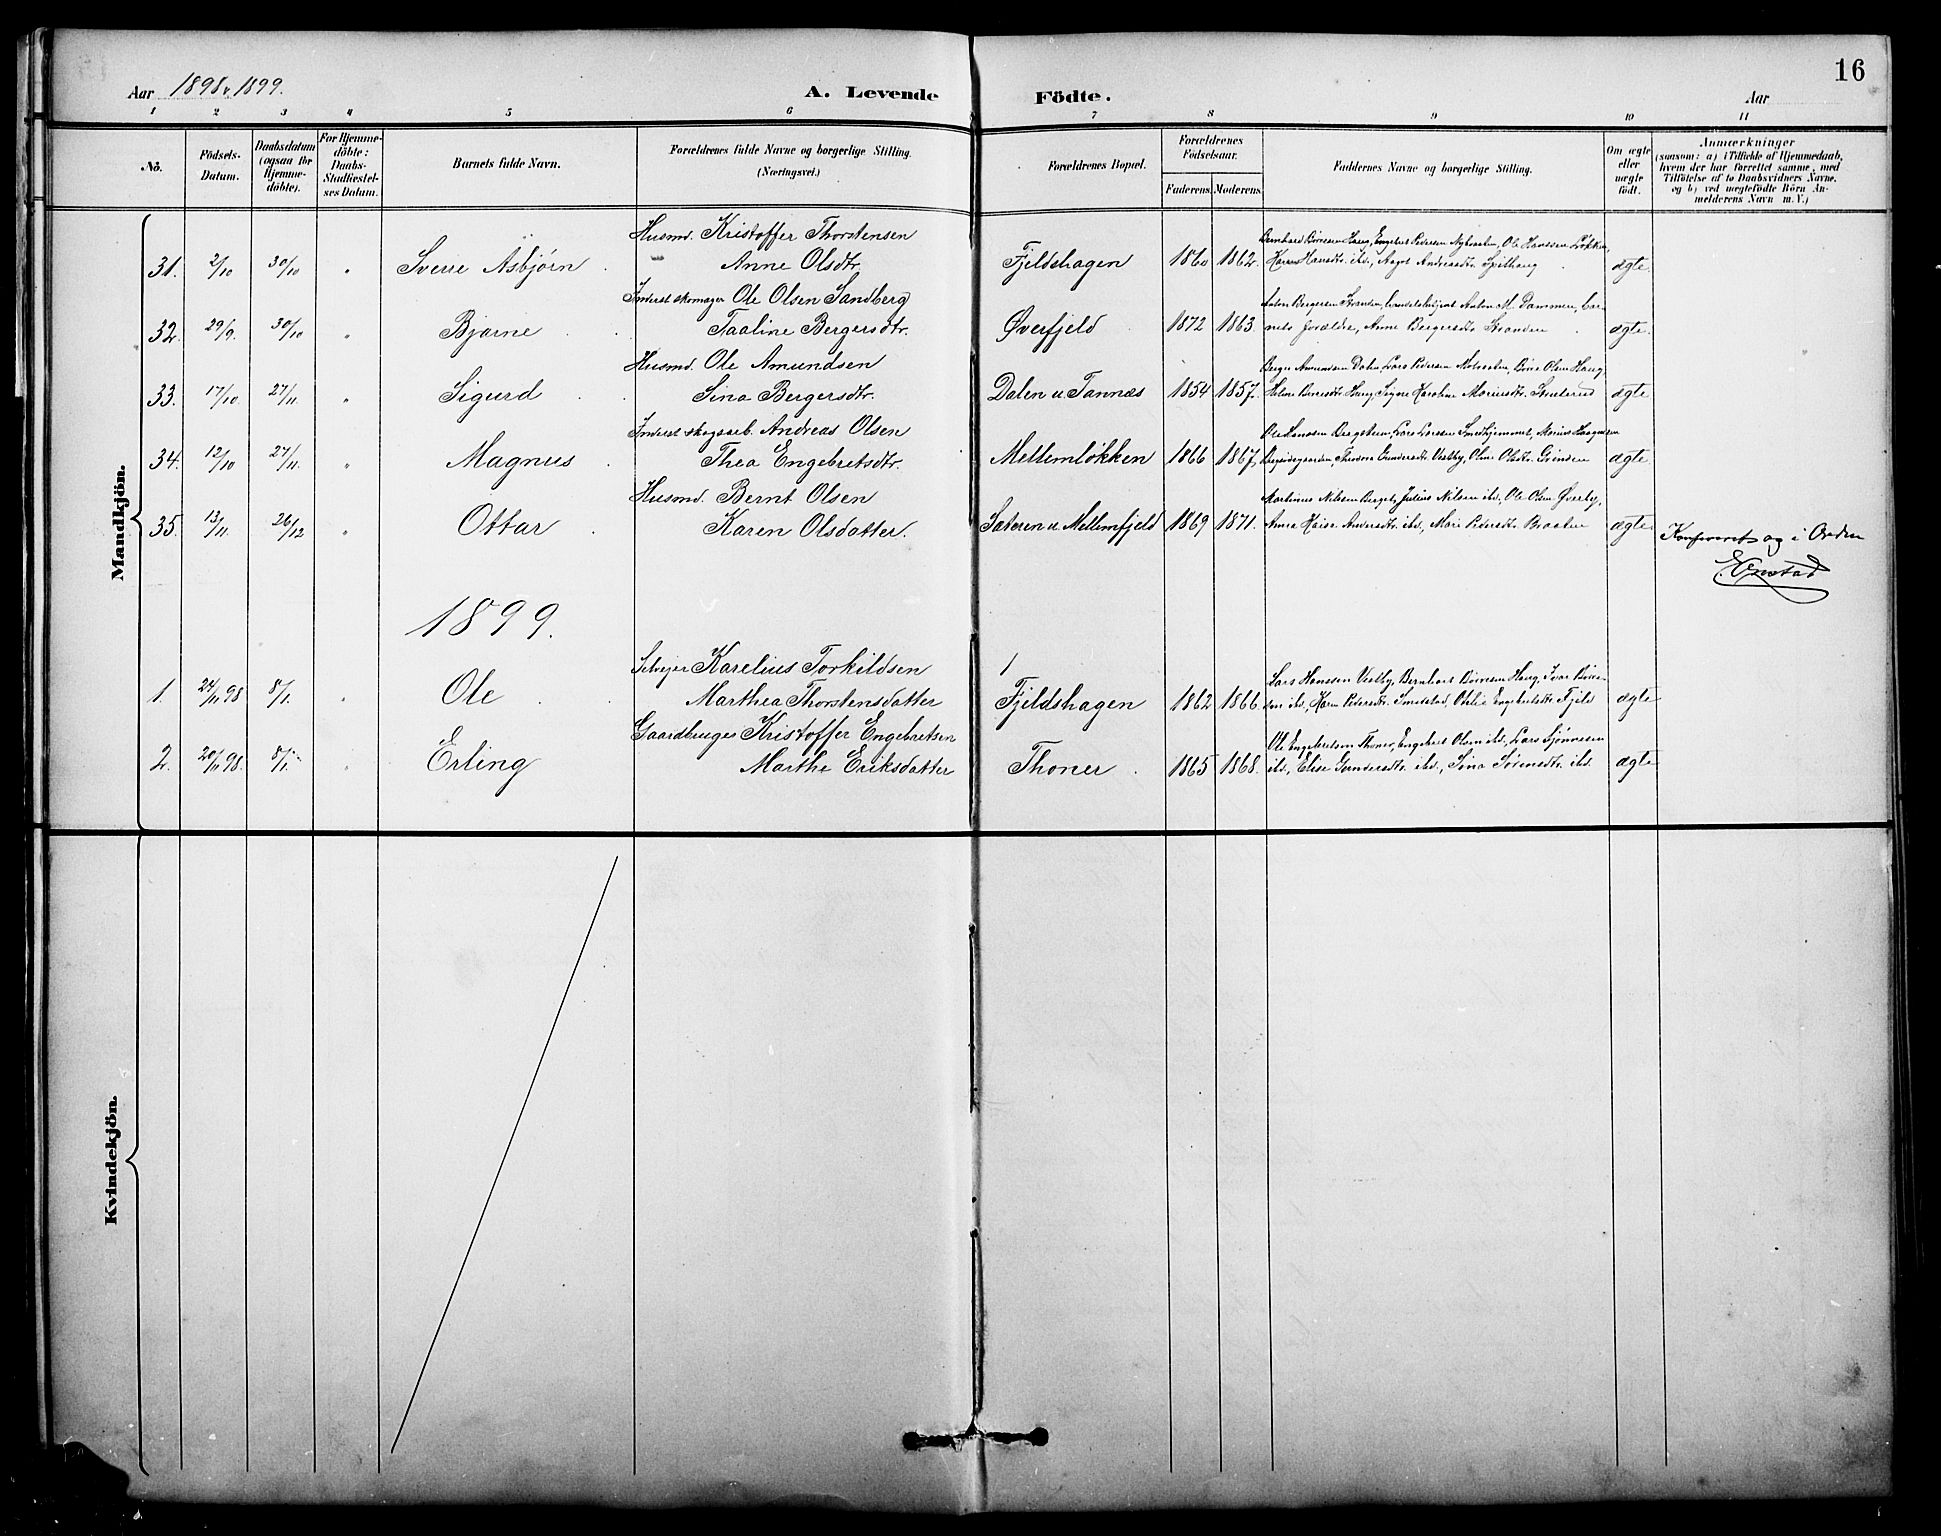 16
Aar 1898 & 1899.
A. Levende Födte.
Aar
1 2 3 4 5 6 7 8 9 10 11
No. Födsels-Datum. Daabsdatum (ogsaa for Hjemme-döbte). For Hjemme-döbte: Daabs-Stadfæstel-ses Datum. Barnets fulde Navn. Forældrenes fulde Navne og borgerlige Stilling. (Næringsvei.) Forældrenes Bopæl. Forældrenes Födselsaar. Faderens. Moderens. Faddernes Navne og borgerlige Stilling. Om ægte eller uægte födt. Anmærkninger (saasom: a) i Tilfælde af Hjemmedaab, hvem der har forrettet samme, med Tilföielse af to Daabsvidners Navne. og b) ved uægtefödte Börn An-melderens Navn m. V.)
Mandkjön.
Husmd. Kristoffer Thorstensen
Bernhard Börresen Haug, Engebret Pedersen Nybraaten, Ole Hanssen Løkken,
31. 2/10 30/10 " Sverre Asbjørn Anne Olsdtr. Fjeldshagen 1860 1862. Karen Hansdtr. ibd., Aagot Andreasdtr. Spithaug ægte.
Inderst skomager Ole Olsen Sandberg
Anton Bergersen Stranden, Anton M. Dammen, bar-
32. 29/9. 30/10 " Bjarne Taaline Bergersdtr. Øverfjeld 1872 1863. nets forældre, Anne Bergersdtr Stranden ægte.
Husmd. Ole Amundsen
Berger Amundsen Dalen, Lars Pedersen Olsen Haug,
33. 17/10. 27/11. " Sigurd Sina Bergersdtr. Dalen u. Tannæs 1854 1857. Haug, Signe Karoline ægte
Inderst skogsarb. Andreas Olsen
Ole Hanssen Lars Larssen Smedhjemmet,
34. 12/10 27/11. " Magnus Thea Engebretsdtr. Mellemløkken 1866 1867. Gundersdtr. Vestby, Oline Olsdtr. Grinden ægte
Husmd. Bernt Olsen
Martinus Nilsen Berget, Julius Nilsen ibd., Ole Olsen Øverby,
35. 13/11. 26/12 " Ottar Karen Olsdatter. Sæteren u. Mellemfjeld 1869 1871. Anna Andersdtr. ibd., Mari Pedersdtr. Braaten ægte
Konfereret og i Orden
1899.
Selvejer Karelius Torkildsen
Lars Hanssen Vestby, Bernhart Börresen Haug, Ivar Börre-
1. 24/11 98 8/1. " Ole Marthea Thorstensdatter Fjeldshagen 1862 1866. sen ibd., Karen Pedersdtr. Smedstad, Otilie Engebretsdtr Fjeld ægte
Gaardbruger Kristoffer Engebretsen
Ole Engebretsen Thoner, Engebret Olsen ibd., Lars
2. 20/11 98. 8/1. " Erling Marthe Eriksdatter Thoner 1865 1868. ibd., Elise Gundersdtr. ibd., Sina ibd. ægte
Kvindekjön.